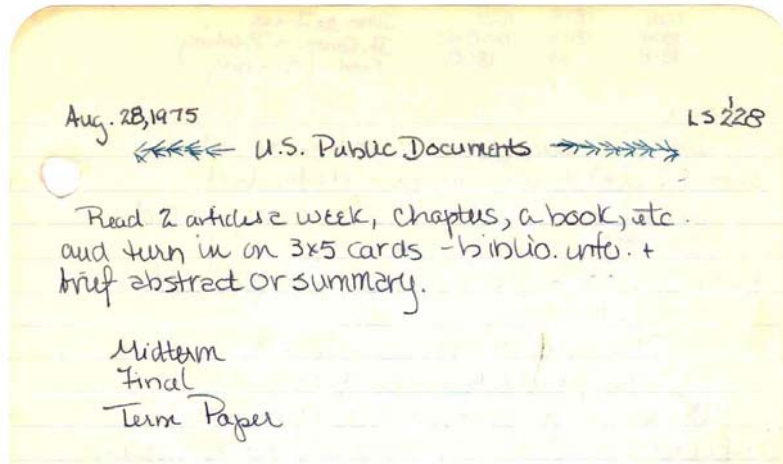 Aug. 28, 1975
LS 228
U.S. Public Documents
Read 2 articles a week, chapters, a book, etc.
and turn in on 3x5 cards - biblio. info. +
brief abstract or summary.
Midterm
Final
Term Paper